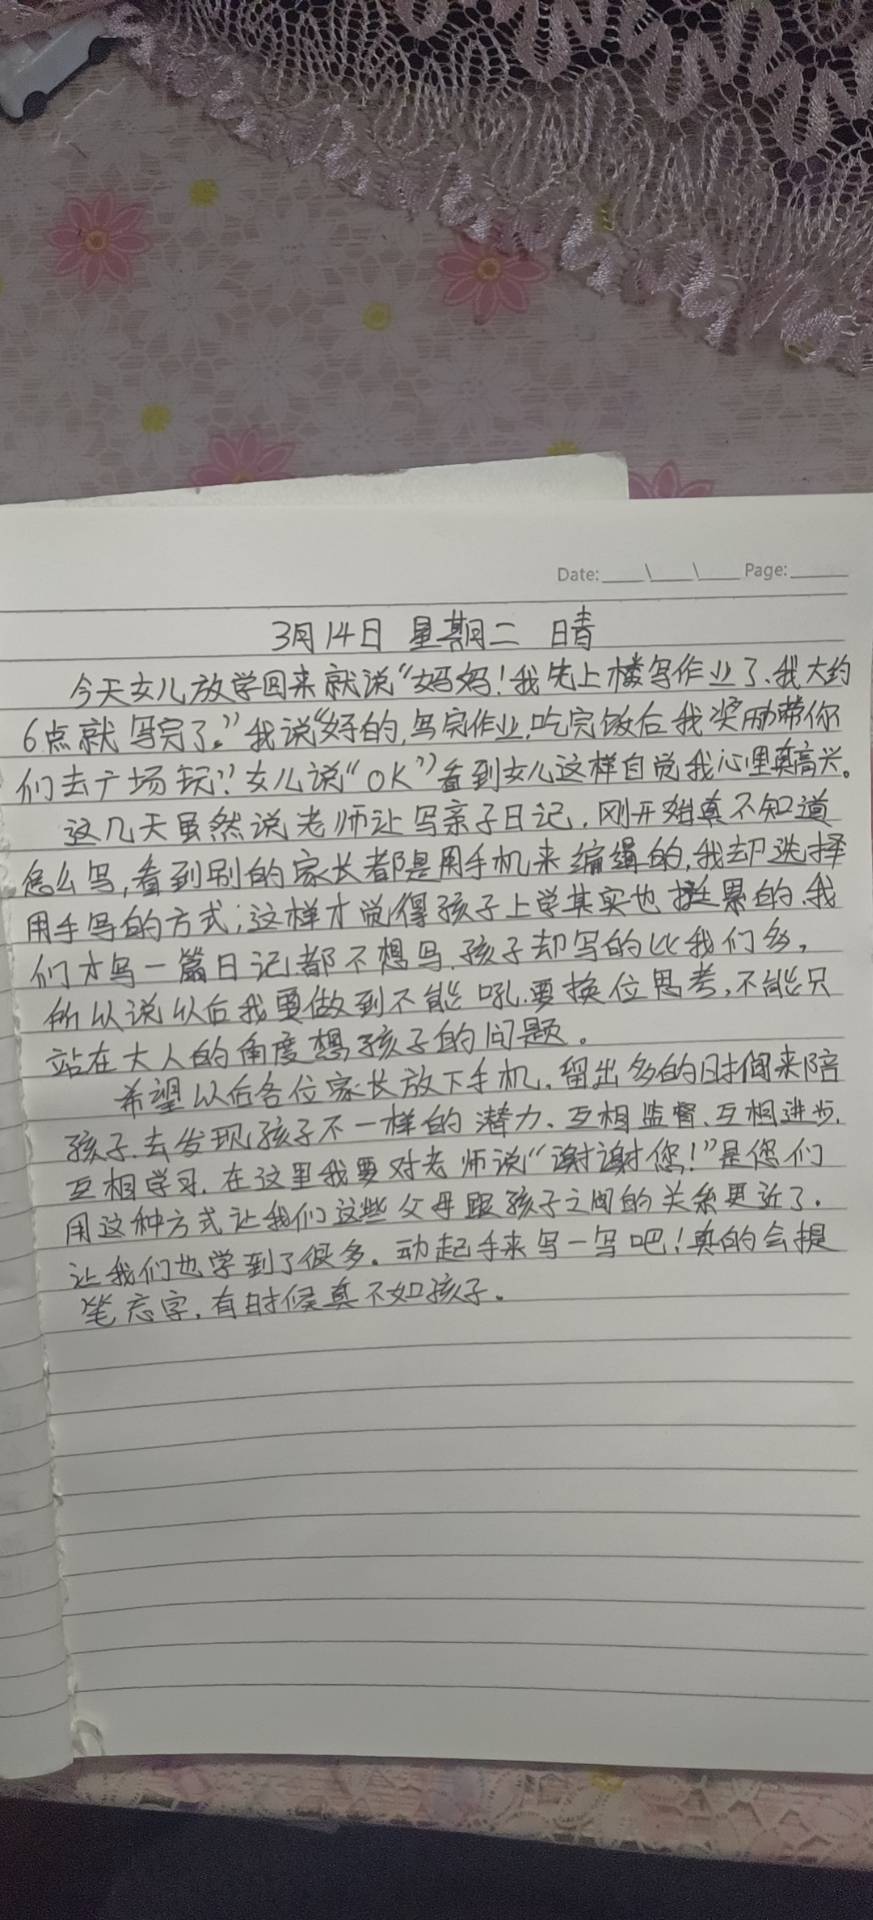 Date:____\____\____ Page:______
3月14日 星期二 晴
今天女儿放学回来就说“妈妈！我先上楼写作业了、我大约
6点就写完了。”我说“好的,写完作业,吃完饭后我奖励带你
们去广场玩”？女儿说“OK”看到女儿这样自觉我心里真高兴。
这几天虽然说老师让写亲子日记,刚开始真不知道
怎么写,看到别的家长都是用手机来编辑的,我却选择
用手写的方式;这样才觉得孩子上学其实也挺累的、我
们才写一篇日记都不想写.孩子却写的比我们多,
所以说以后我要做到不能吼.要换位思考,不能只
站在大人的角度想孩子的问题。
希望以后各位家长放下手机.留出多的时间来陪
孩子.去发现孩子不一样的潜力、互相监督、互相进步.
互相学习.在这里我要对老师说“谢谢您！”是您们
用这种方式让我们这些父母跟孩子之间的关系更近了.
让我们也学到了很多.动起手来写一写吧！真的会提
笔忘字,有时候真不如孩子.